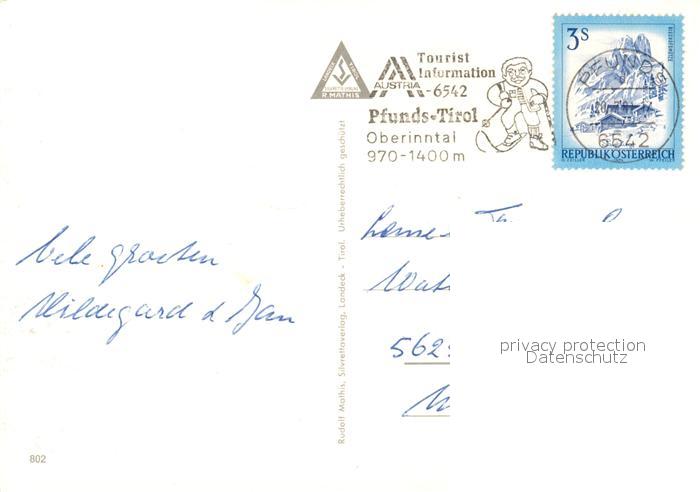 R. MATHIS
AUSTRIA
Tourist
Information
-6542
Pfunds-Tirol
Oberinntal
970-1400 m
3 S
PFUNDS
6542
REPUBLIK ÖSTERREICH
Vele groeten
Hildegard & Jan
562
Rudolf Mathis, Silvrettaverlag, Landeck - Tirol. Urheberrechtlich geschützt
privacy protection
Datenschutz
802